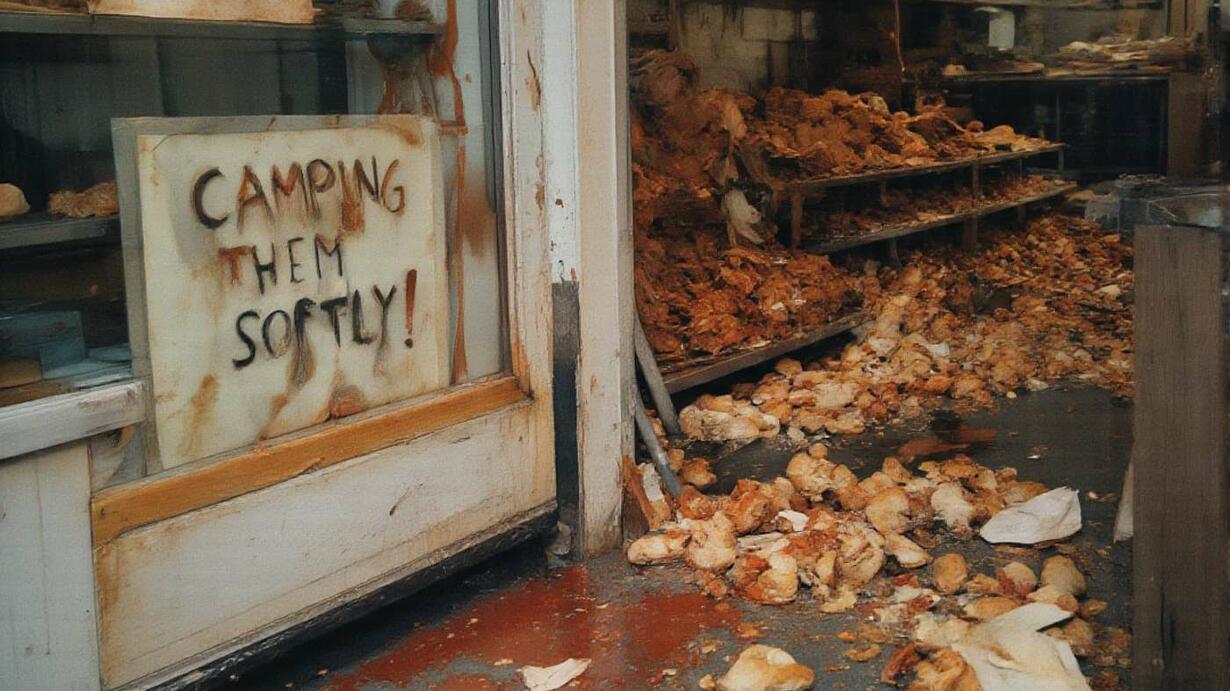 CAMPING
THEM
SOFTLY!